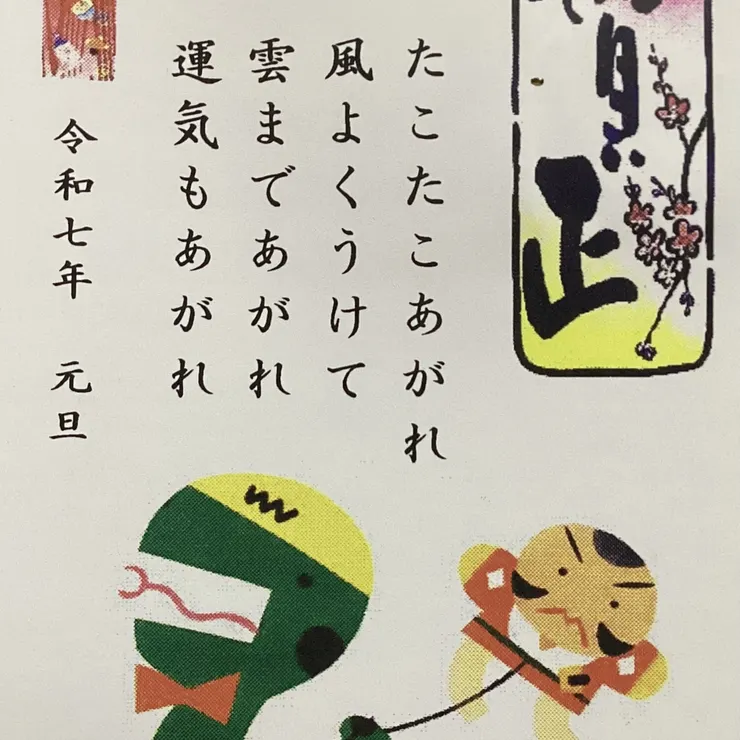 賀正
たこたこあがれ
風よくうけて
雲まであがれ
運気もあがれ
令和七年 元旦